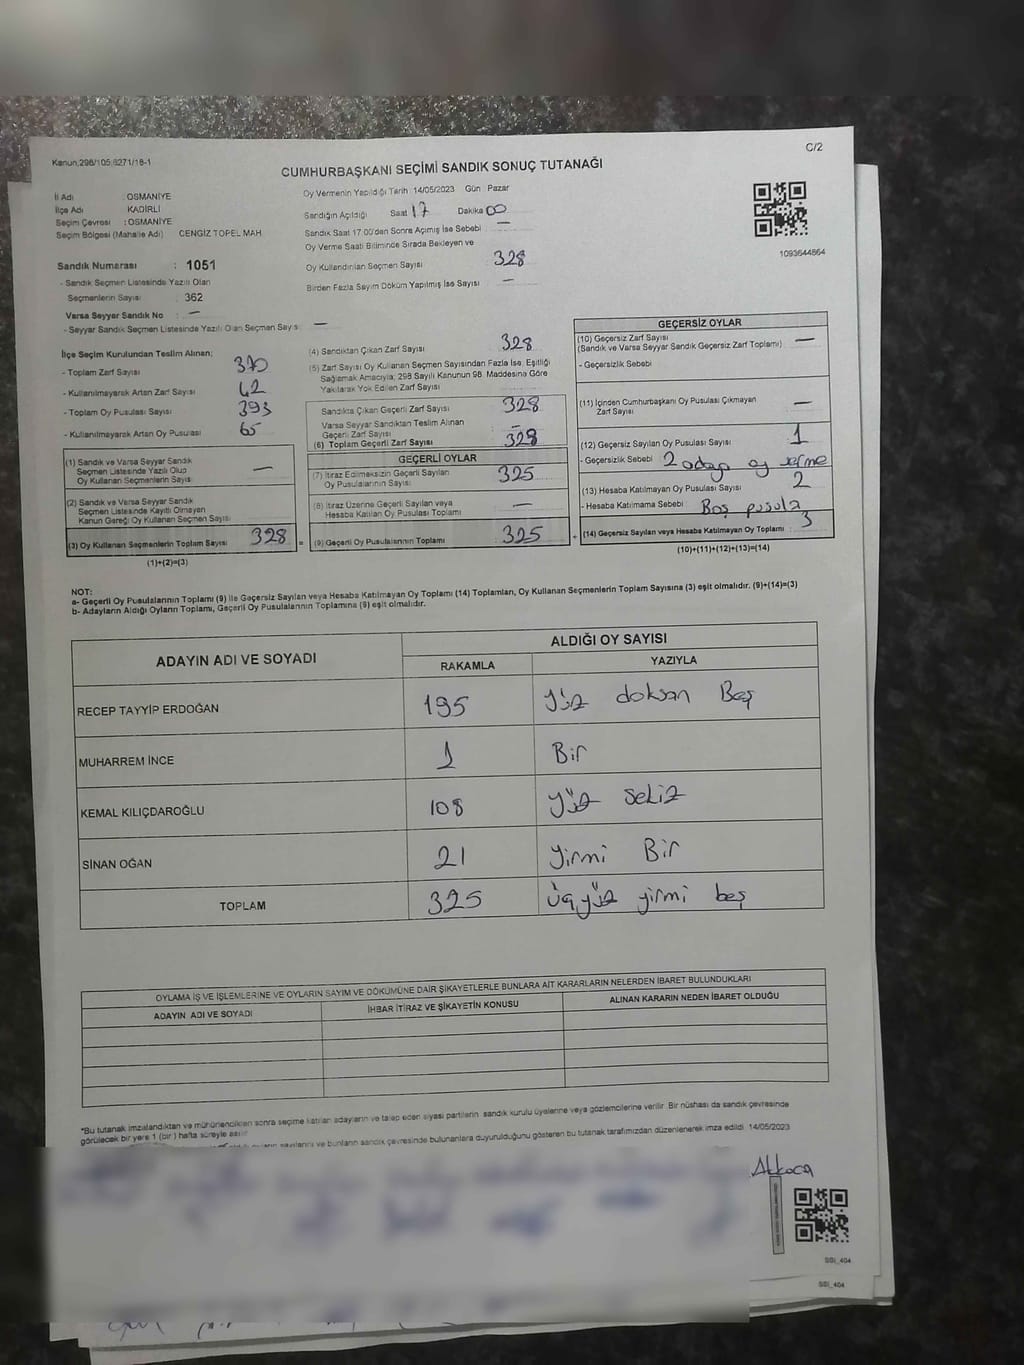 Kanun:298/105,6271/18-1
C/2
CUMHURBAŞKANI SEÇİMİ SANDIK SONUÇ TUTANAĞI
İl Adı : OSMANİYE
İlçe Adı KADİRLİ
Seçim Çevresi : OSMANİYE
Seçim Bölgesi (Mahalle Adı) CENGİZ TOPEL MAH.
Sandık Numarası : 1051
- Sandık Seçmen Listesinde Yazılı Olan
Seçmenlerin Sayısı : 362
Varsa Seyyar Sandık No : —
- Seyyar Sandık Seçmen Listesinde Yazılı Olan Seçmen Sayısı —
Oy Vermenin Yapıldığı Tarih :14/05/2023 Gün Pazar
Sandığın Açıldığı Saat 17 Dakika 00
Sandık Saat 17.00'den Sonra Açılmış İse Sebebi —
Oy Verme Saati Bitiminde Sırada Bekleyen ve
Oy Kullandırılan Seçmen Sayısı 328
Birden Fazla Sayım Döküm Yapılmış İse Sayısı —
1093644864
İlçe Seçim Kurulundan Teslim Alınan;
- Toplam Zarf Sayısı 370
- Kullanılmayarak Artan Zarf Sayısı 42
- Toplam Oy Pusulası Sayısı 393
- Kullanılmayarak Artan Oy Pusulası 65
(1) Sandık ve Varsa Seyyar Sandık
Seçmen Listesinde Yazılı Olup
Oy Kullanan Seçmen Sayısı —
(2) Sandık ve Varsa Seyyar Sandık
Seçmen Listesinde Kayıtlı Olmayan
Kanun Gereği Oy Kullanan Seçmen Sayısı
(3) Oy Kullanan Seçmenlerin Toplam Sayısı 328 =
(1)+(2)=(3)
(4) Sandıktan Çıkan Zarf Sayısı 328
(5) Zarf Sayısı Oy Kullanan Seçmen Sayısından Fazla İse, Eşitliği
Sağlamak Amacıyla; 298 Sayılı Kanunun 98. Maddesine Göre
Yakılarak Yok Edilen Zarf Sayısı
Sandıkta Çıkan Geçerli Zarf Sayısı 328
Varsa Seyyar Sandıktan Teslim Alınan
Geçerli Zarf Sayısı —
(6) Toplam Geçerli Zarf Sayısı 328
GEÇERLİ OYLAR
(7) İtiraz Edilmeksizin Geçerli Sayılan
Oy Pusulalarının Sayısı 325
(8) İtiraz Üzerine Geçerli Sayılan veya
Hesaba Katılan Oy Pusulası Toplamı —
(9) Geçerli Oy Pusulalarının Toplamı : 325 +
GEÇERSİZ OYLAR
(10) Geçersiz Zarf Sayısı
(Sandık ve Varsa Seyyar Sandık Geçersiz Zarf Toplamı) —
- Geçersizlik Sebebi
(11) İçinden Cumhurbaşkanı Oy Pusulası Çıkmayan
Zarf Sayısı —
(12) Geçersiz Sayılan Oy Pusulası Sayısı 1
- Geçersizlik Sebebi 2 adaya oy verme
(13) Hesaba Katılmayan Oy Pusulası Sayısı 2
- Hesaba Katılmama Sebebi Boş pusula
(14) Geçersiz Sayılan veya Hesaba Katılmayan Oy Toplamı : 3
(10)+(11)+(12)+(13)=(14)
NOT:
a- Geçerli Oy Pusulalarının Toplamı (9) ile Geçersiz Sayılan veya Hesaba Katılmayan Oy Toplamı (14) Toplamları, Oy Kullanan Seçmenlerin Toplam Sayısına (3) eşit olmalıdır. (9)+(14)=(3)
b- Adayların Aldığı Oyların Toplamı, Geçerli Oy Pusulalarının Toplamına (9) eşit olmalıdır.
ADAYIN ADI VE SOYADI
ALDIĞI OY SAYISI
RAKAMLA YAZIYLA
RECEP TAYYİP ERDOĞAN 195 Yüz doksan Beş
MUHARREM İNCE 1 Bir
KEMAL KILIÇDAROĞLU 108 Yüz Sekiz
SİNAN OĞAN 21 Yirmi Bir
TOPLAM 325 üçyüz yirmi beş
OYLAMA İŞ VE İŞLEMLERİNE VE OYLARIN SAYIM VE DÖKÜMÜNE DAİR ŞİKAYETLERLE BUNLARA AİT KARARLARIN NELERDEN İBARET BULUNDUKLARI
ADAYIN ADI VE SOYADI İHBAR İTİRAZ VE ŞİKAYETİN KONUSU ALINAN KARARIN NEDEN İBARET OLDUĞU
*Bu tutanak imzalandıktan ve mühürlendikten sonra seçime katılan adayların ve talep eden siyasi partilerin sandık kurulu üyelerine veya gözlemcilerine verilir. Bir nüshası da sandık çevresinde
görülecek bir yere 1 (bir) hafta süreyle asılır.
sayılarını ve bunların sandık çevresinde bulunanlara duyurulduğunu gösteren bu tutanak tarafımızdan düzenlenerek imza edildi. 14/05/2023
Akkoca
SSI_404
SSI_404